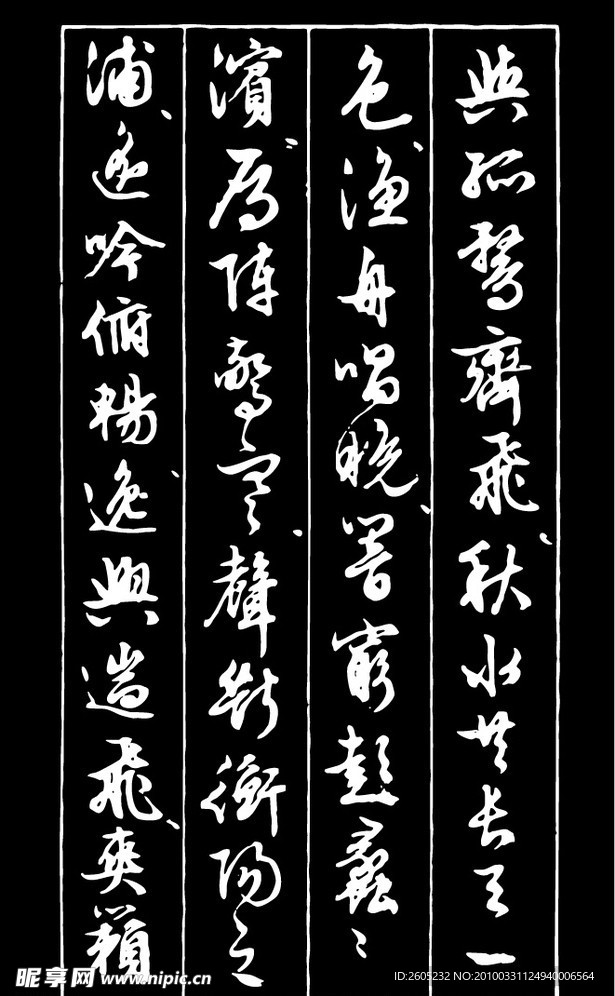 與孤鶩齊飛、秋水共長天一
色、漁舟唱晚、響窮彭蠡之
濱、雁陣驚寒、聲斷衡陽之
浦、遥吟俯暢、逸興遄飛、爽籟
昵享网 www.nipic.cn
ID:2605232 NO:20100331124940006564